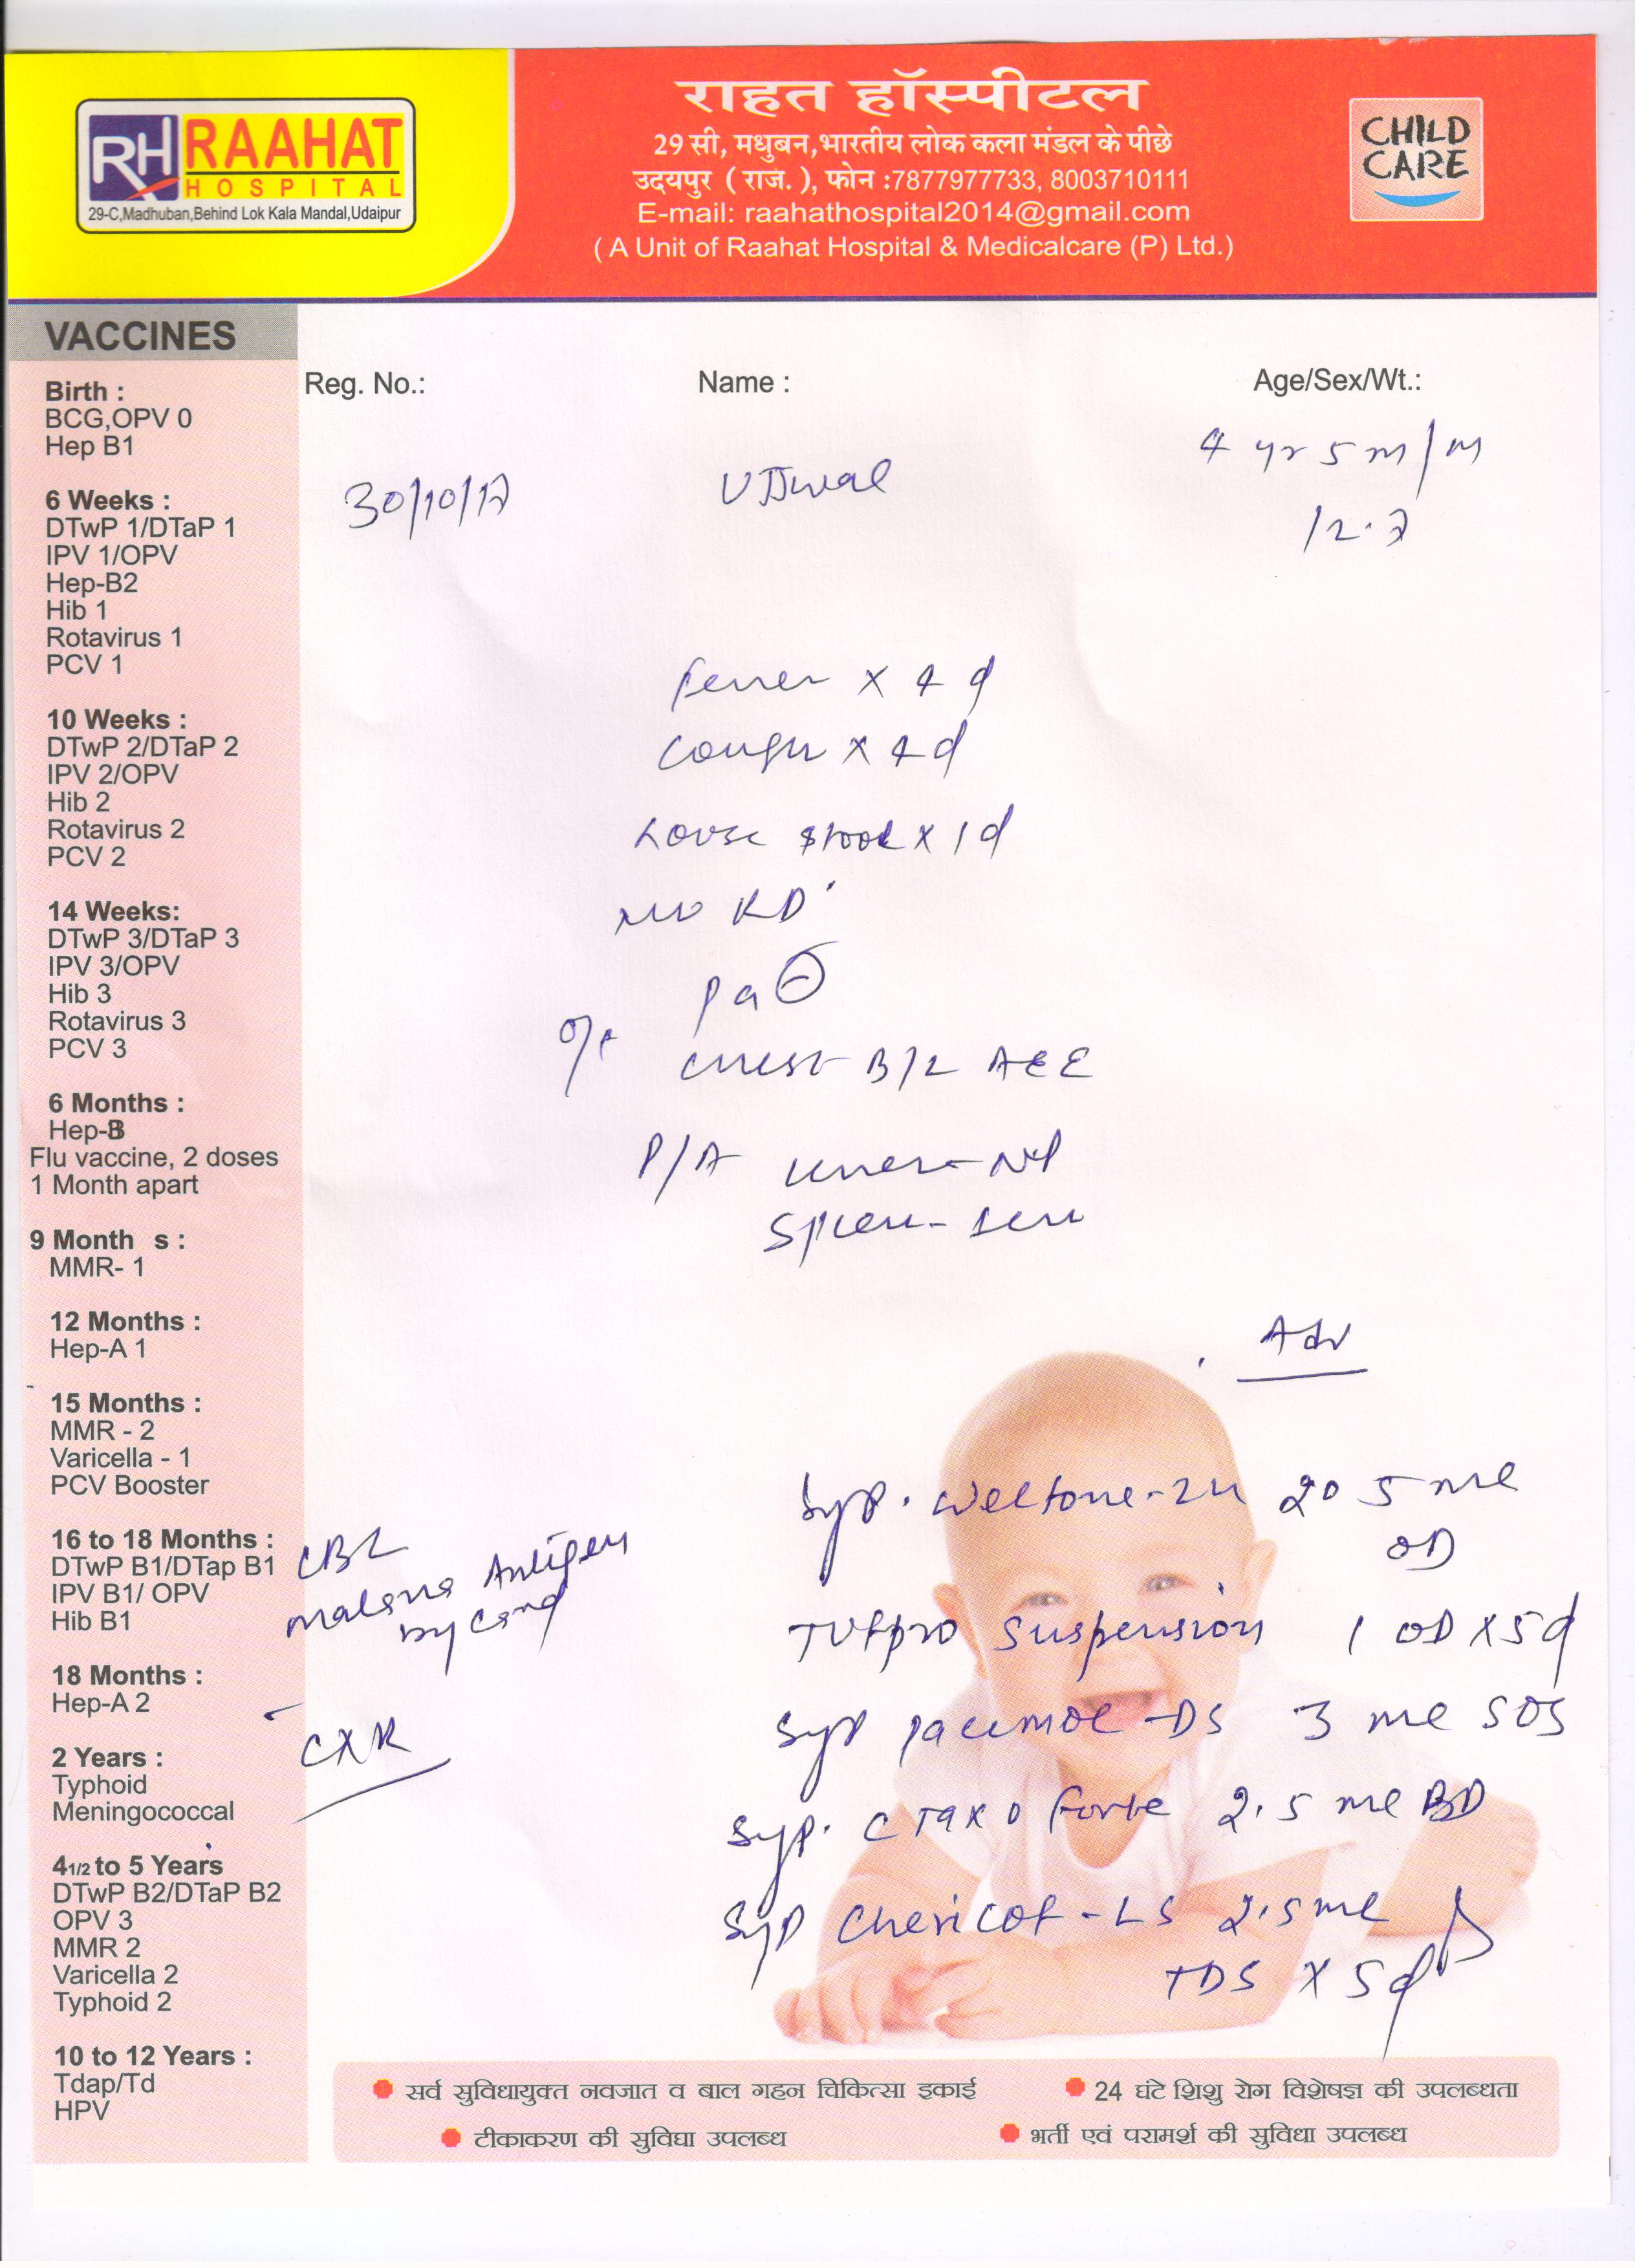 RH RAAHAT
HOSPITAL
29-C,Madhuban,Behind Lok Kala Mandal,Udaipur
राहत हॉस्पीटल
29 सी, मधुबन,भारतीय लोक कला मंडल के पीछे
उदयपुर ( राज. ), फोन :7877977733, 8003710111
E-mail: raahathospital2014@gmail.com
( A Unit of Raahat Hospital & Medicalcare (P) Ltd.)
CHILD
CARE
VACCINES
Birth :
BCG,OPV 0
Hep B1
6 Weeks :
DTwP 1/DTaP 1
IPV 1/OPV
Hep-B2
Hib 1
Rotavirus 1
PCV 1
10 Weeks :
DTwP 2/DTaP 2
IPV 2/OPV
Hib 2
Rotavirus 2
PCV 2
14 Weeks:
DTwP 3/DTaP 3
IPV 3/OPV
Hib 3
Rotavirus 3
PCV 3
6 Months :
Hep-B3
Flu vaccine, 2 doses
1 Month apart
9 Month s :
MMR- 1
12 Months :
Hep-A 1
15 Months :
MMR - 2
Varicella - 1
PCV Booster
16 to 18 Months :
DTwP B1/DTap B1
IPV B1/ OPV
Hib B1
18 Months :
Hep-A 2
2 Years :
Typhoid
Meningococcal
41/2 to 5 Years
DTwP B2/DTaP B2
OPV 3
MMR 2
Varicella 2
Typhoid 2
10 to 12 Years :
Tdap/Td
HPV
Reg. No.: Name : Age/Sex/Wt.:
30/10/17 UJJwal 4 yr 5 m/M
12.7
fever x 4 d
cough x 4 d
Loose stool x 1 d
Pa ⊖
O/E chest B/L AEE
P/A Liver - NP
Spleen -
Adv
Syp. Weltone-Zn 5 ml
OD
Tufpro Suspension 1 OD x 5 d
Syp Pacimol-DS 3 ml SOS
Syp. C Tax O forte 2.5 ml BD
Syp Chericof - LS 2.5 ml
TDS x 5 d
CBC
Malaria Antigen
by Card
CXR
सर्व सुविधायुक्त नवजात व बाल गहन चिकित्सा इकाई
24 घंटे शिशु रोग विशेषज्ञ की उपलब्धता
टीकाकरण की सुविधा उपलब्ध
भर्ती एवं परामर्श की सुविधा उपलब्ध